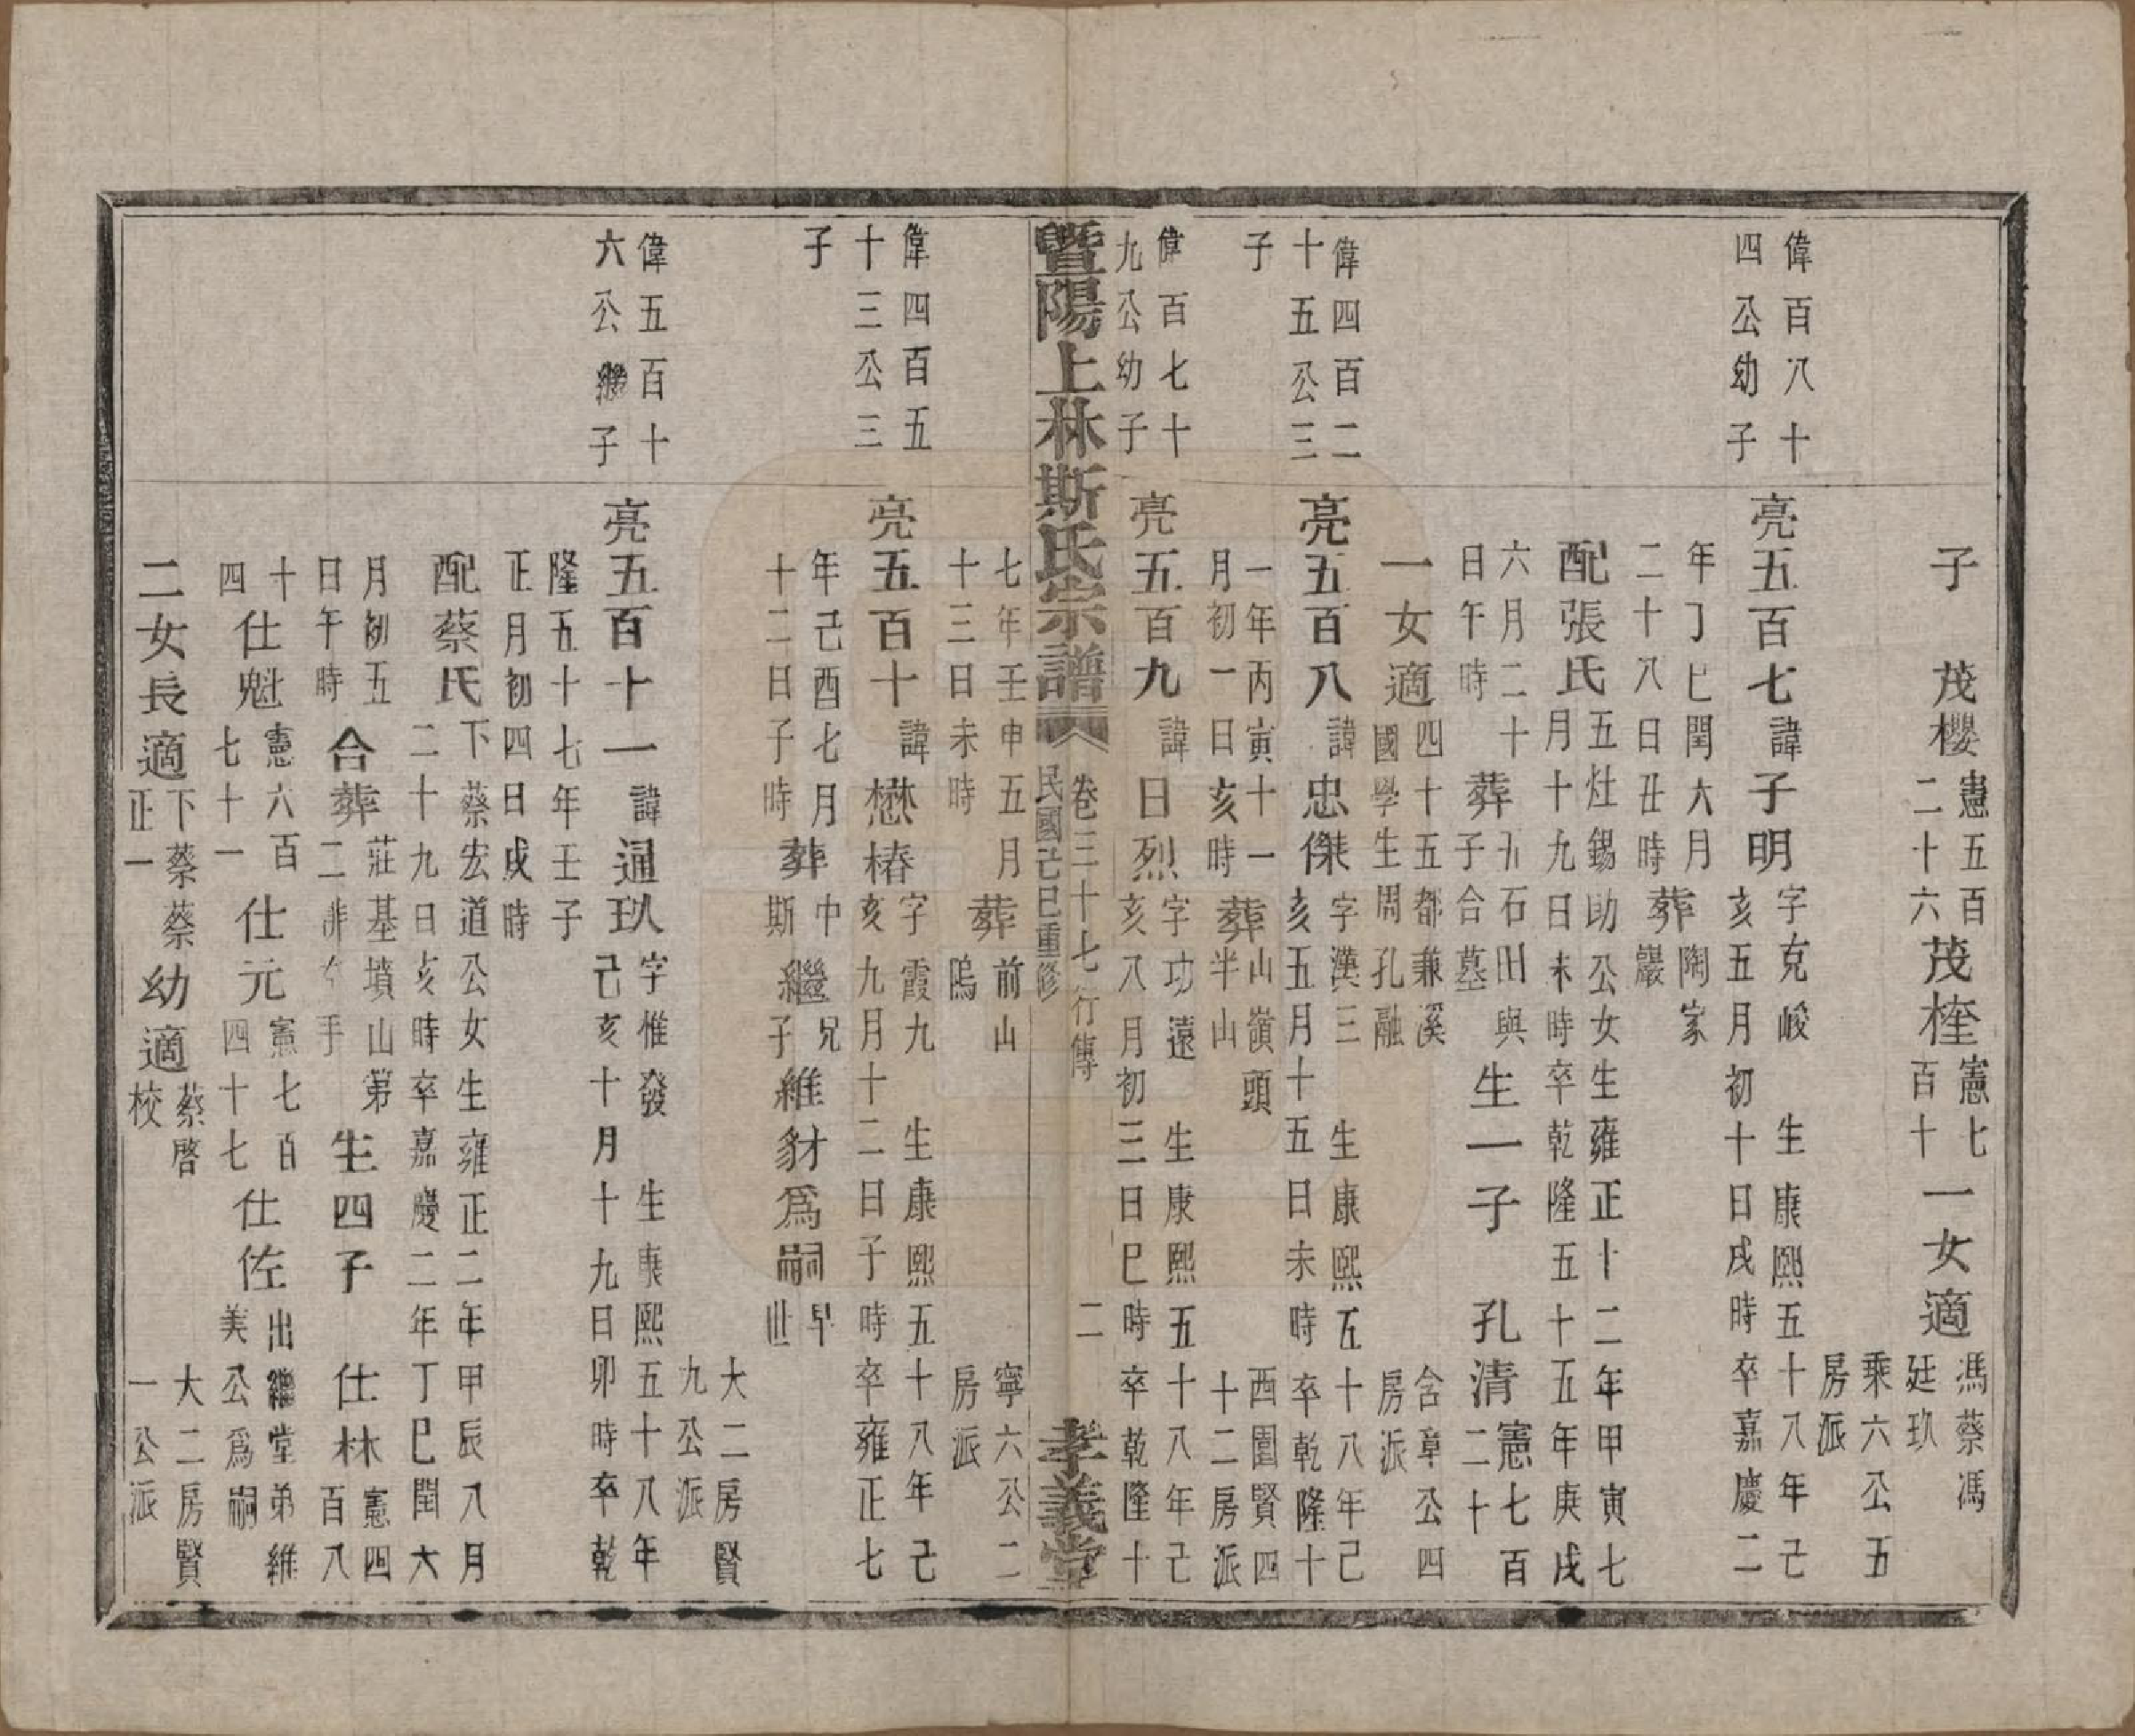 子　茂櫻憲五百二十六茂桎憲七百十一女適馮蔡馮廷玖
乘六公五房派
偉百八十四公幼子
亮五百七諱子明字克峻　生康熙五十八年己亥五月初十日戌時卒嘉慶二
年丁巳閏六月二十八日丑時葬陶家巖
配張氏五灶錫助公女生雍正十二年甲寅七月十九日未時卒乾隆五十五年庚戌
六月二十日午時葬石田與子合墓生一子　孔清憲七百二十
一女適四十五都兼溪國學生周孔融
含章公四房派
偉四百二十五公三子
亮五百八諱忠傑字漢三　生康熙五十八年己亥五月十五日未時卒乾隆十
一年丙寅十一月初一日亥時葬山嶺頭半山
西園賢四十二房派
偉百七十九公幼子
亮五百九諱日烈字功遠　生康熙五十八年己亥八月初三日巳時卒乾隆十
暨陽上林斯氏宗譜　卷三十七行傳　民國己巳重修　二　孝義堂
七年壬申五月十三日未時葬前山塢
寧六公二房派
偉四百五十三公三子
亮五百十諱懋椿字霞九　生康熙五十八年己亥九月十二日子時卒雍正七
年己酉七月十二日子時葬中斯繼兄子維豺爲嗣早世
大二房賢九公派
偉五百十六公繼子
亮五百十一諱通玖字惟發　生康熙五十八年己亥十月十九日卯時卒乾
隆五十七年壬子正月初四日戌時
配蔡氏下蔡宏道公女生雍正二年甲辰八月二十九日亥時卒嘉慶二年丁巳閏六
月初五日午時合葬莊基墳山第二手生四子　仕林憲四百八
十四仕魁憲六百七十一仕元憲七百四十七仕佐出繼堂弟維美公爲嗣
二女長適下蔡蔡正一幼適蔡啓校
大二房賢一公派